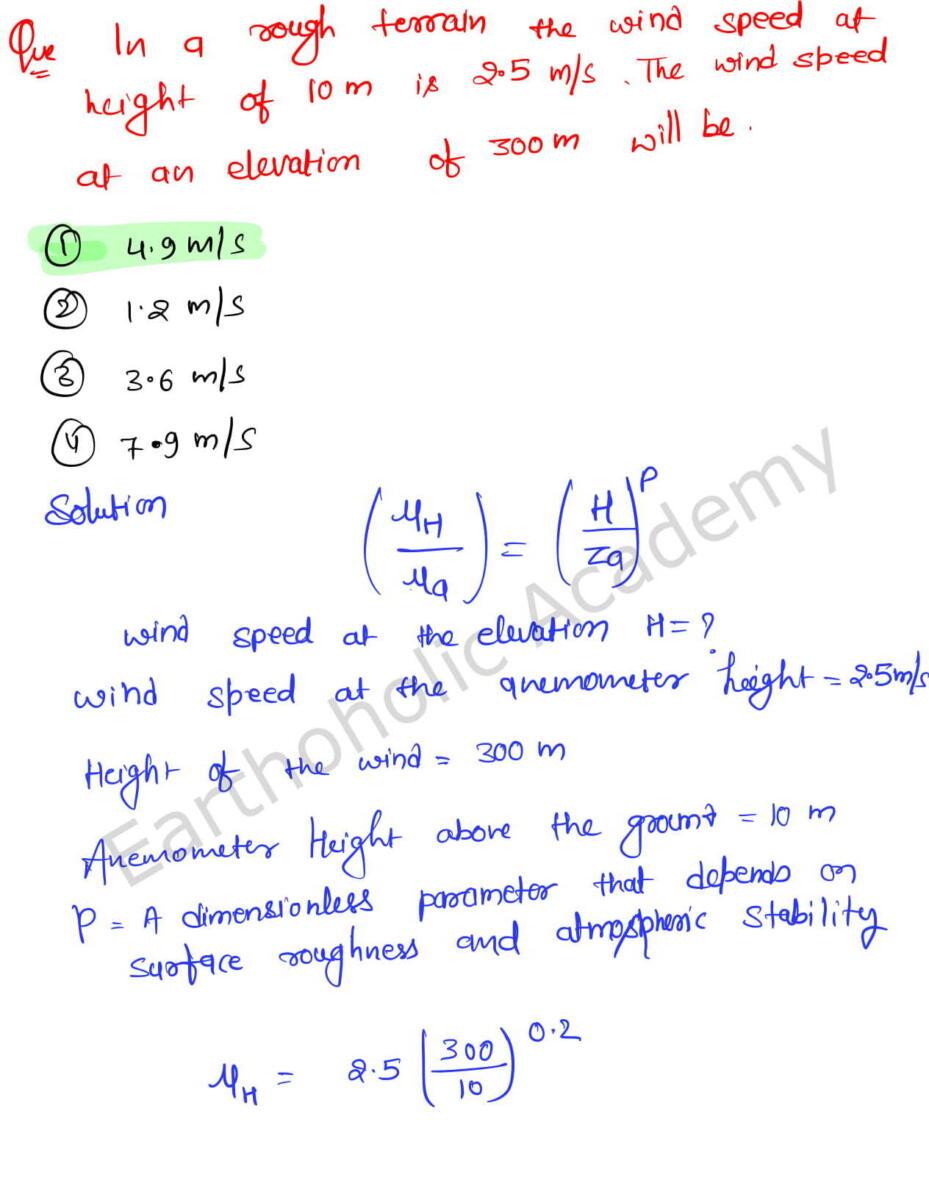 Que In a rough terrain the wind speed at
height of 10 m is 2.5 m/s. The wind speed
at an elevation of 300 m will be.
① 4.9 m/s
② 1.2 m/s
③ 3.6 m/s
④ 7.9 m/s
Solution (μH / μa) = (H / za)^P
wind speed at the elevation H = ?
wind speed at the anemometer height = 2.5 m/s
Height of the wind = 300 m
Anemometer Height above the ground = 10 m
P = A dimensionless parameter that depends on
surface roughness and atmospheric stability
μH = 2.5 (300 / 10)^0.2
Earthoholic Academy